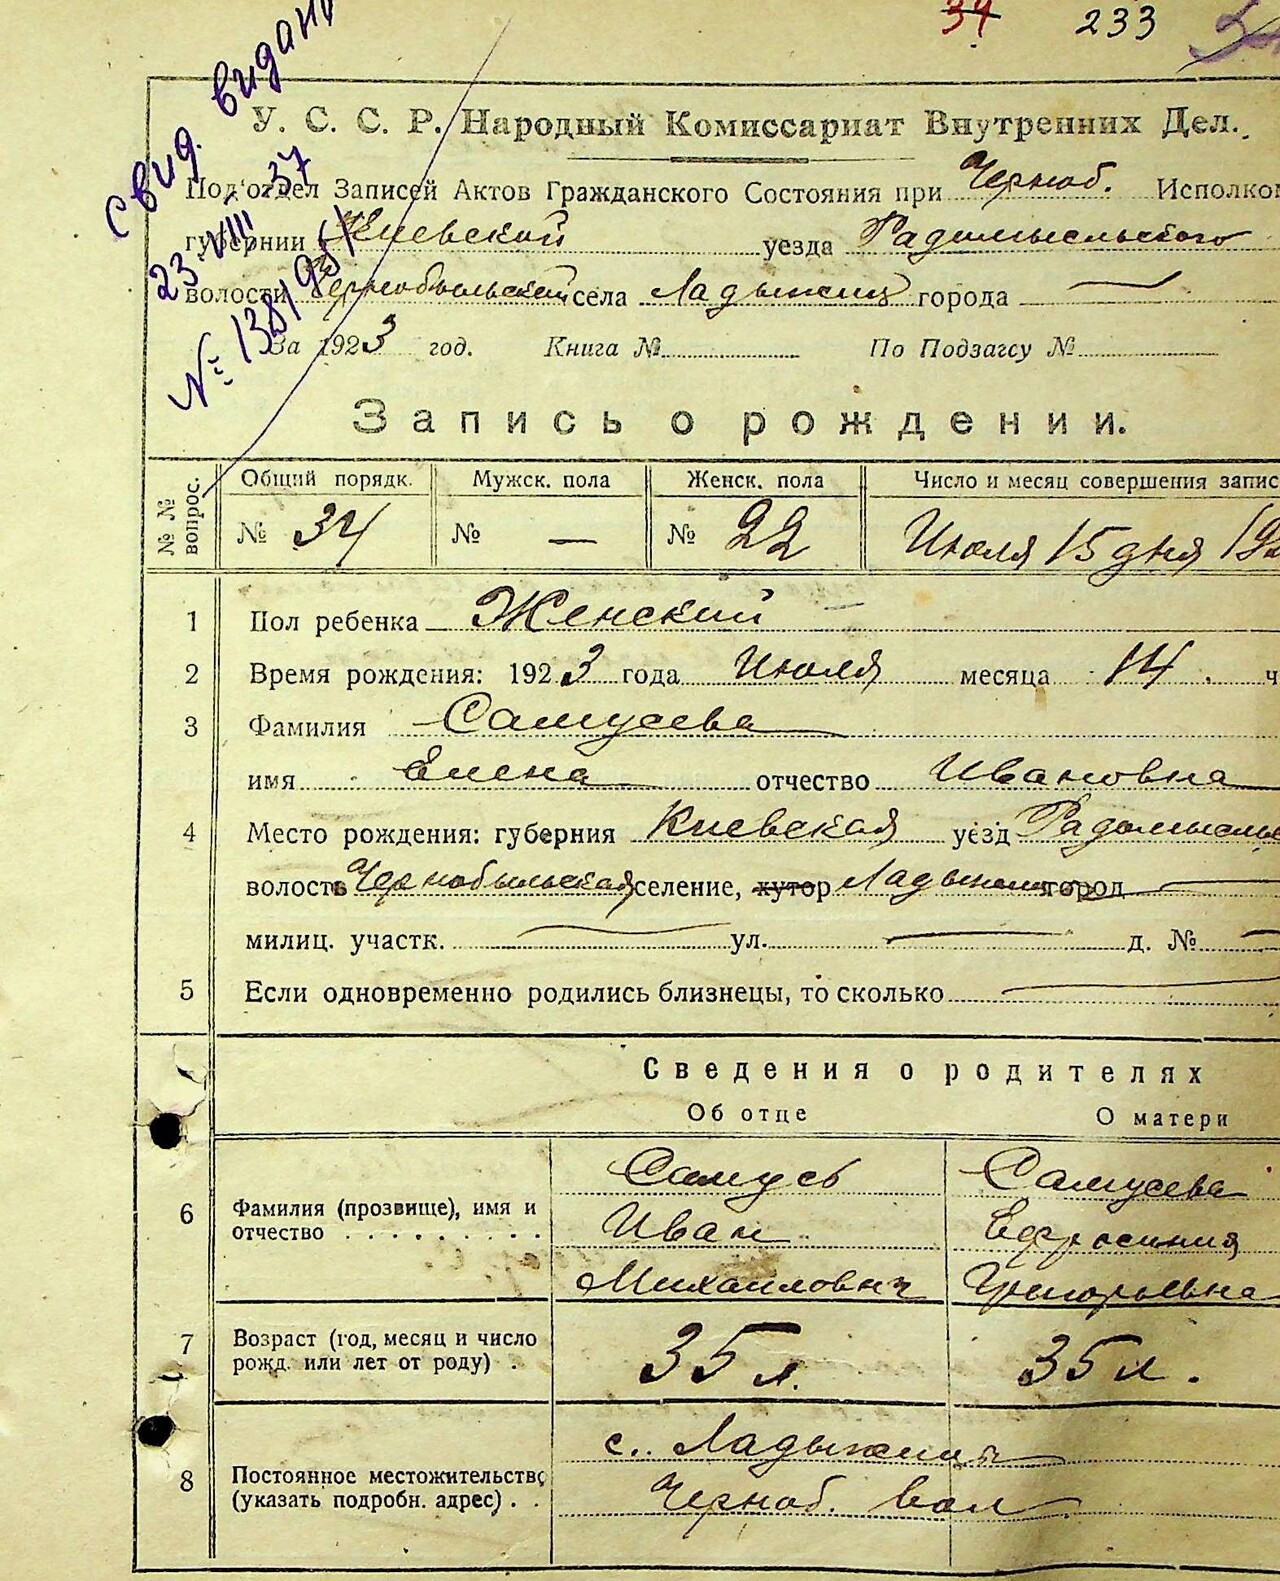 34 233
Свид. видано
23 VIII 37
№ 138/95
У. С. С. Р. Народный Комиссариат Внутренних Дел.
Под'отдел Записей Актов Гражданского Состояния при Черноб. Исполком
губернии Киевской уезда Радомысльского
волости Чернобыльской села Ладыжич города —
За 1923 год. Книга № По Подзагсу №
Запись о рождении.
№ № вопрос. Общий порядк. Мужск. пола Женск. пола Число и месяц совершения запис
№ 34 № — № 22 Июля 15 дня 192
1 Пол ребенка Женский
2 Время рождения: 1923 года Июля месяца 14 ч
3 Фамилия Самусева
имя Елена отчество Ивановна
4 Место рождения: губерния Киевская уезд Радомысль
волость Чернобыльская селение, хутор Ладыжичи город —
милиц. участк. — ул. — д. № —
5 Если одновременно родились близнецы, то сколько —
Сведения о родителях
Об отце О матери
Самусь Самусева
6 Фамилия (прозвище), имя и Иван Ефросиния
отчество Михаилович Григорьевна
7 Возраст (год, месяц и число 35 л. 35 л.
рожд. или лет от роду)
с. Ладыжичи
8 Постоянное местожительство Черноб. вол
(указать подробн. адрес)